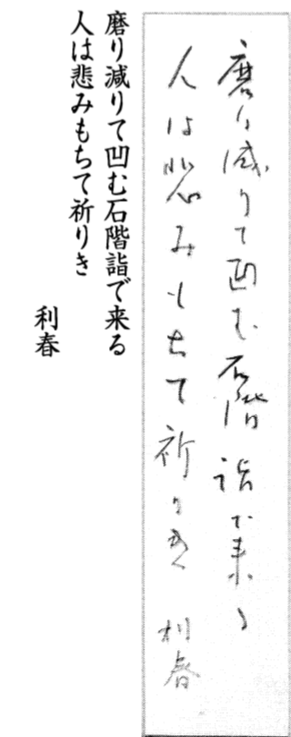 磨り減りて凹む石階詣で来る
人は悲みもちて祈りき 利春
磨り減りて凹む石階詣で来る
人は悲みもちて祈りき
利春